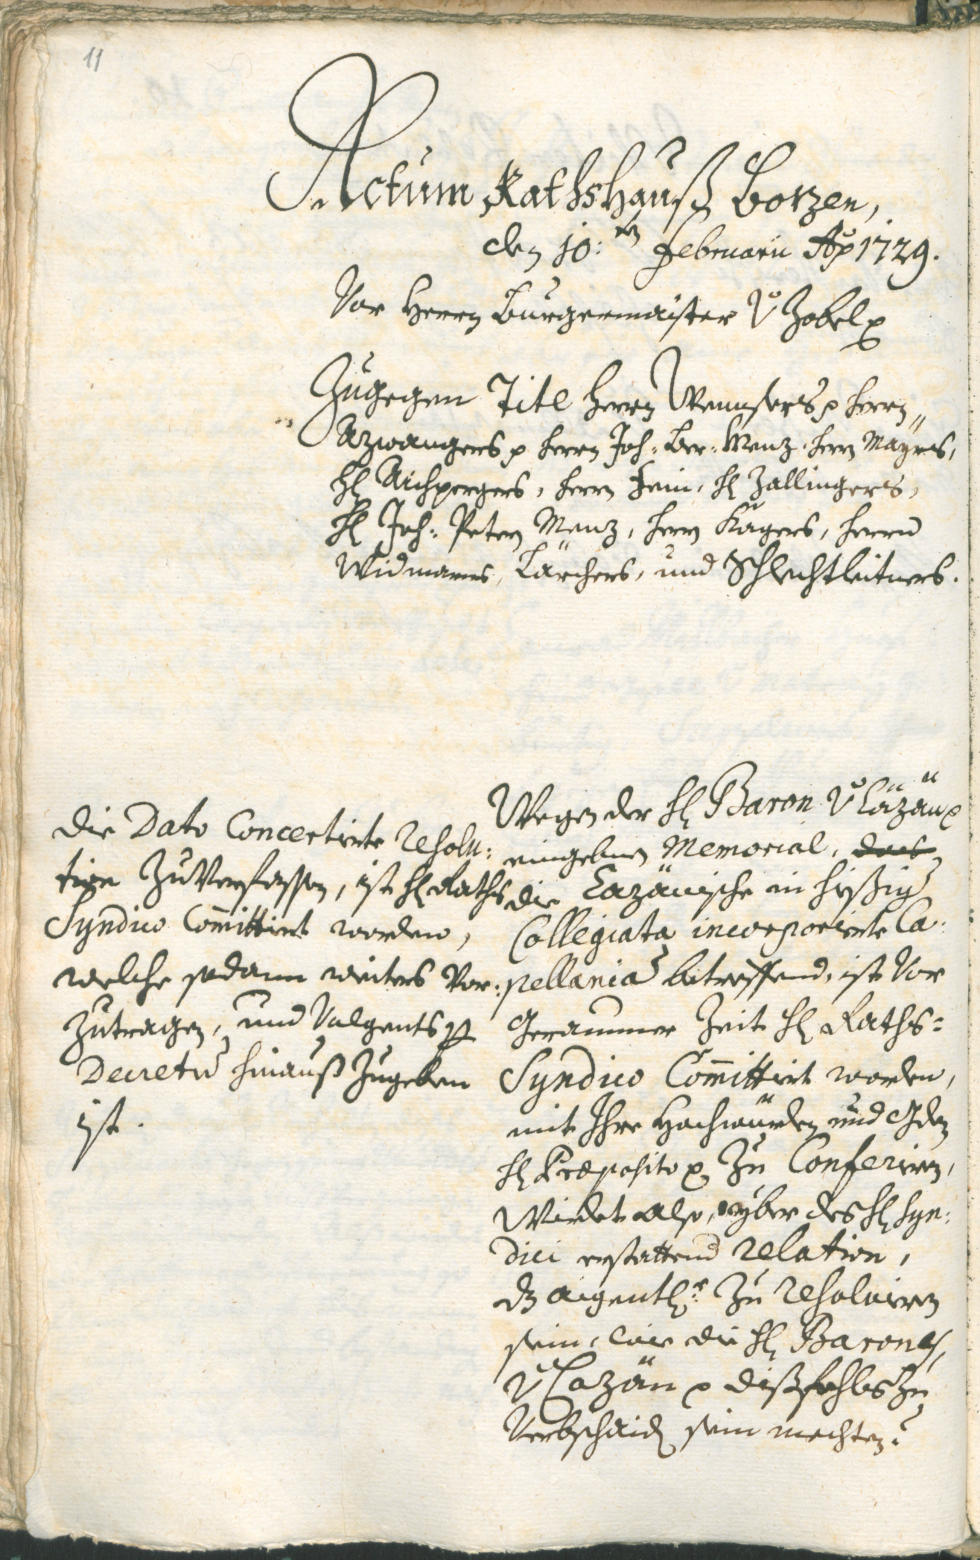 11
Actum Rathshauß Botzen,
den 10:ten Februarii Ao 1729.
Vor Herrn Burgermaister v Zobel p
Zugegen Titl Herrn Wennsers p Herrn
Azwangers p Herrn Joh: Menz. Herrn Mayrs,
H Aichpergers, Herrn Fein, H Zallingers,
H Joh: Peter Menz, Herrn Kägers, Herrn
Widmanns, Lärchers, und Schlechtleitners.
Die Dato Concertirte resolu:
tion zu verfassen, ist H Raths
Syndico Committirt worden,
welche sodann weiters vor:
zutragen, und volgents p
Decretu hinauß zugeben
ist.
Wegen der H Baron v Cazän p
eingeben Memorial, das
die Cazänische in hießig
Collegiata incorporirte Ca:
pellania betreffend, ist vor
geraummer Zeit H Raths=
Syndico Committirt worden,
mit Ihro Hochwürden und Gden
H Præposito p zu Conferiren,
Wirdet also, yber des H Syn:
dici erstattend relation,
dz aigentl: zu resolviren
sein, wie die H Barones
v Cazän p dißfahls zu
verbschaiden sein mechten?